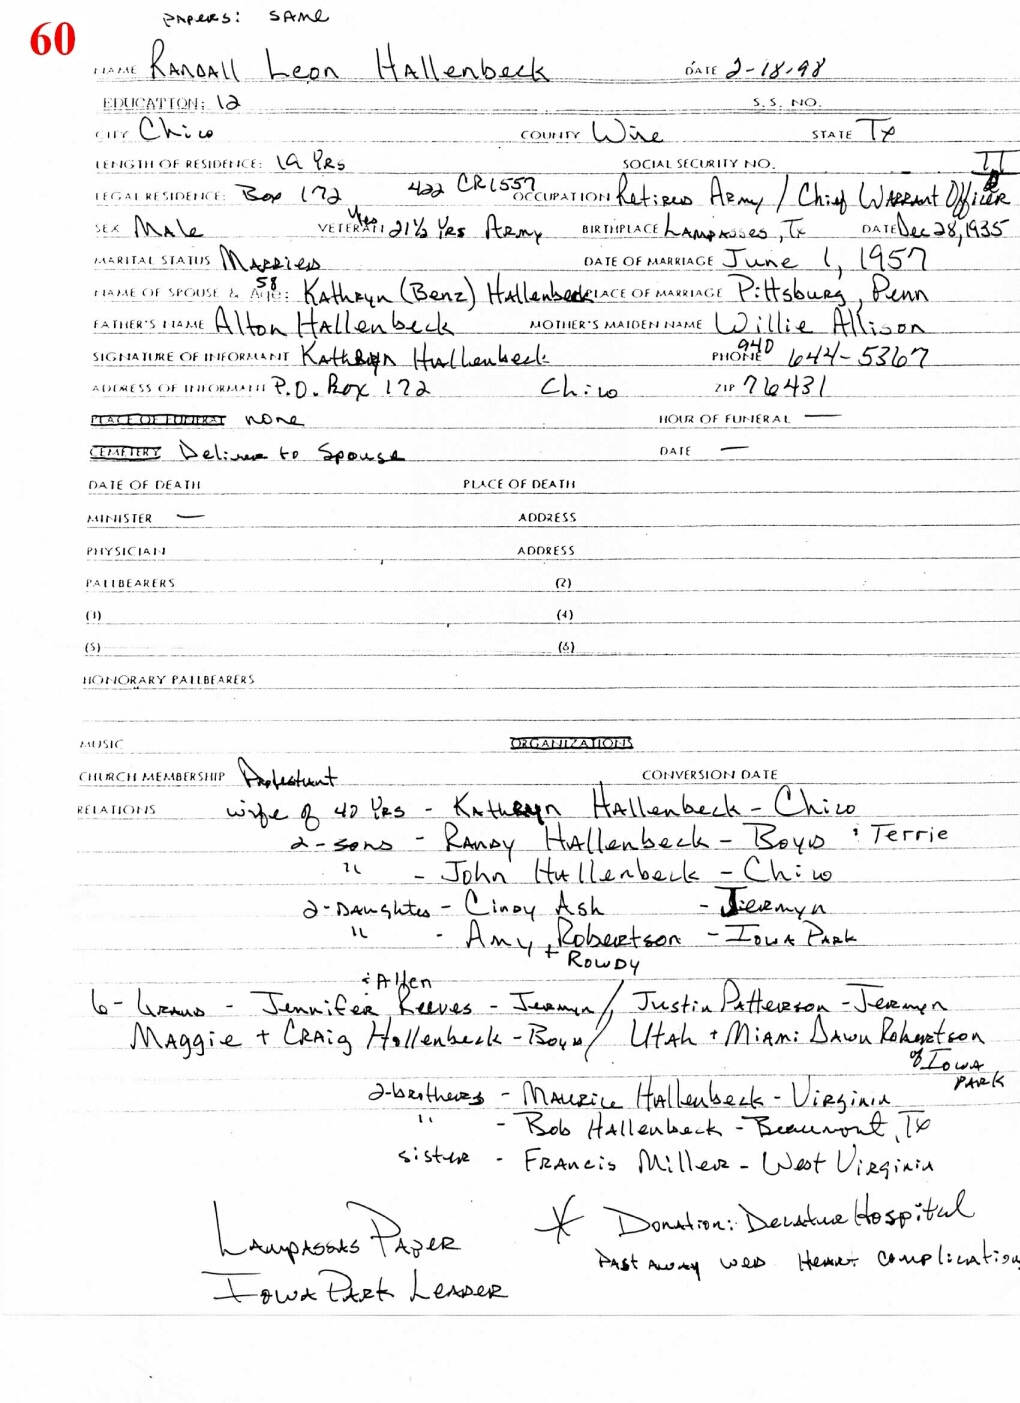 PAPERS: SAME
60
NAME RANDALL Leon HALLenbeck DATE 2-18-98
EDUCATION: 12 S.S. NO.
CITY Chico COUNTY Wise STATE Tx
LENGTH OF RESIDENCE: 19 YRS SOCIAL SECURITY NO. II
LEGAL RESIDENCE: Box 172 422 CR1557 OCCUPATION Retired Army / Chief WARRANT Officer
SEX MALe VETERAN Yes 21½ Yrs Army BIRTHPLACE LAMPASSES, Tx DATE Dec 28, 1935
MARITAL STATUS MARRIED DATE OF MARRIAGE June 1, 1957
NAME OF SPOUSE & Age: 58 KAthRyn (Benz) HAllenbeck PLACE OF MARRIAGE Pittsburg, Penn
FATHER'S NAME Alton HAllenbeck MOTHER'S MAIDEN NAME Willie Allison
SIGNATURE OF INFORMANT KAthRyn HAllenbeck PHONE 940 644-5367
ADDRESS OF INFORMANT P.O. Box 172 Chico ZIP 76431
PLACE OF FUNERAL none HOUR OF FUNERAL —
CEMETERY Deliver to Spouse DATE —
DATE OF DEATH PLACE OF DEATH
MINISTER — ADDRESS
PHYSICIAN ADDRESS
PALLBEARERS (2)
(3) (4)
(5) (6)
HONORARY PALLBEARERS
MUSIC ORGANIZATIONS
CHURCH MEMBERSHIP Protestant CONVERSION DATE
RELATIONS wife of 40 YRS - KAthRyn HAllenbeck - Chico
2-sons - RANDY HAllenbeck - BOYD & Terrie
" - John HAllenbeck - Chico
2-DAughters - CINDY Ash - Jermyn
" - Amy + Robertson - IOWA PARK
ROWDY
& Allen
6 - GRAND - Jennifer Reeves - Jermyn / Justin Patterson - Jermyn
MAggie + CRAIG HAllenbeck - Boyd / UTAH + MIAMI DAWN Robertson
of IOWA
PARK
2-brothers - MAURICE HAllenbeck - VIRGINIA
" - Bob HAllenbeck - Beaumont, Tx
sister - FRANCIS Miller - West VIRGINIA
LAMPASSAS PAPER
* Donation: DecAtur Hospital
PAST AWAY WED HEART COMPLICATION
IOWA PARK LEADER